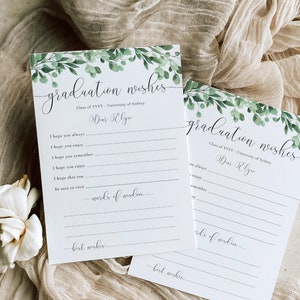 graduation wishes
Class of YYYY - University of Sydney
Dear Elyse
I hope you always
I hope you enjoy
I hope you remember
I hope you enjoy
I hope that you
Be sure to visit
words of wisdom
best wishes
graduation wishes
Class of YYYY - University of Sydney
Dear Elyse
always
enjoy
words of wisdom
best wishes